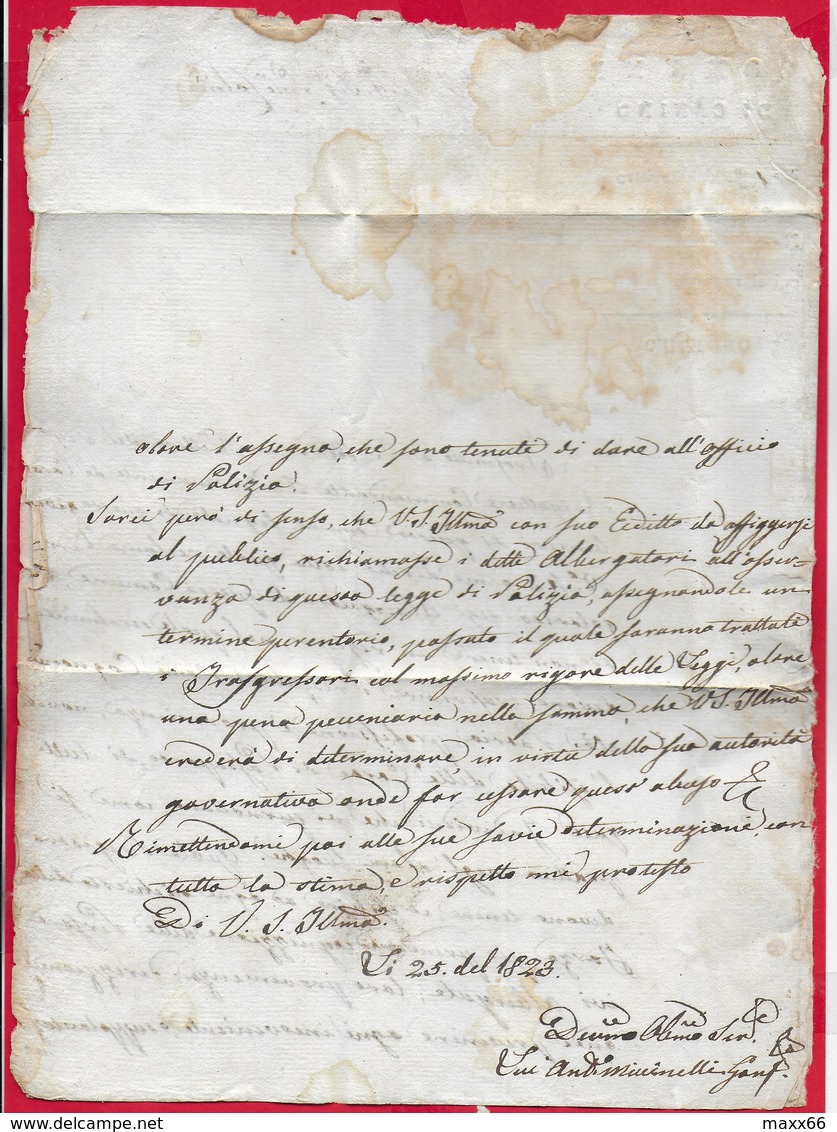 oltre l'assegna, che sono tenute di dare all'officio
di Polizia.
Sarei però di senso, che V. S. Illma con suo Editto da affiggersi
al publico, richiamasse i detti Albergatori all'osser-
vanza di questa legge di Polizia, assegnandole un
termine perentorio, passato il quale saranno trattate
i Trasgressori col massimo rigore delle Leggi, oltre
una pena pecuniaria nella somma, che V. S. Illma
crederà di determinare, in virtù della sua autorità
governativa onde far cessare quest' abuso
Rimettendomi poi alle sue savie determinazioni, con
tutta la stima, e rispetto mi protesto
Di V. S. Illma
Li 25. del 1823.
Devmo Obmo Serve
Lui Anto Miccinelli Gonf.
maxx66
delcampe.net